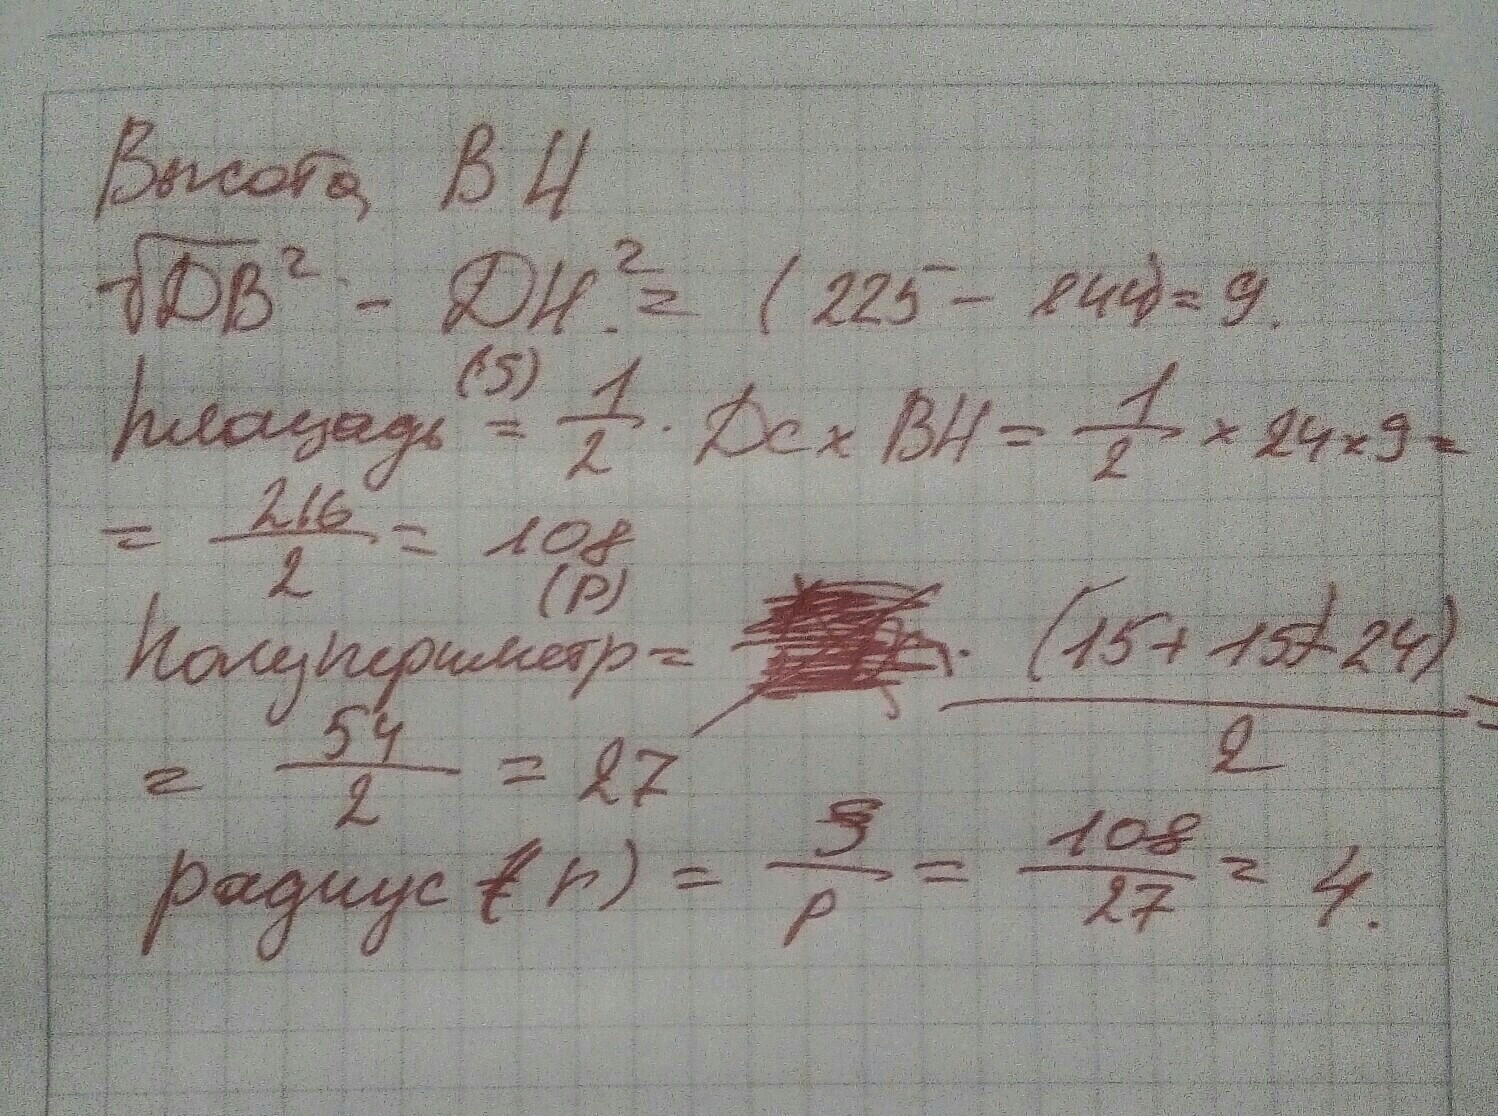 Высота BH
√DB² - DH² = (225 - 144) = 9.
Площадь (S) = 1/2 · DC x BH = 1/2 x 24 x 9 =
= 216/2 = 108
Полупериметр (p) = (15 + 15 + 24)/2 =
= 54/2 = 27
радиус (r) = S/p = 108/27 = 4.